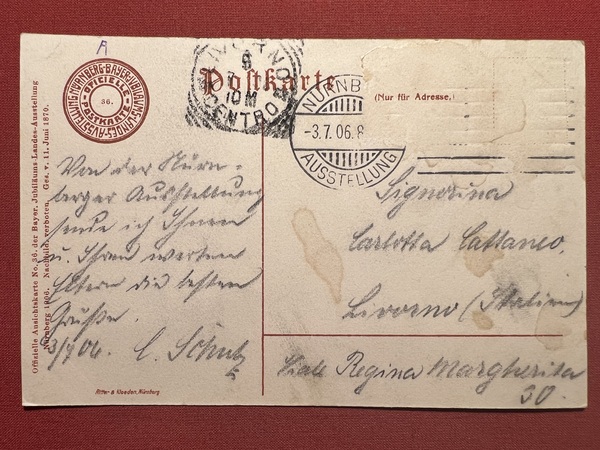 A
NÜRNBERG·BAYER·JUBILÄUMS-LANDES-AUSSTELLUNG
OFFICIELLE
36.
POSTKARTE
Postkarte
(Nur für Adresse.)
LIVORNO
10M
CENTRO
NÜRNB
-3.7.06.8
AUSSTELLUNG
Offizielle Ansichtskarte No. 36. der Bayer. Jubiläums-Landes-Ausstellung
Nürnberg 1906. Nachbild. verboten. Ges. v. 11. Juni 1870.
Von der Nürn-
berger Ausstellung
sende ich Ihnen
u. Ihren werten
Eltern die besten
Grüße.
3/7 06. C. Schulz
Signorina
Carlotta Cattaneo.
Livorno (Italien)
Viale Regina Margherita
30.
Ritter & Kloeden, Nürnberg